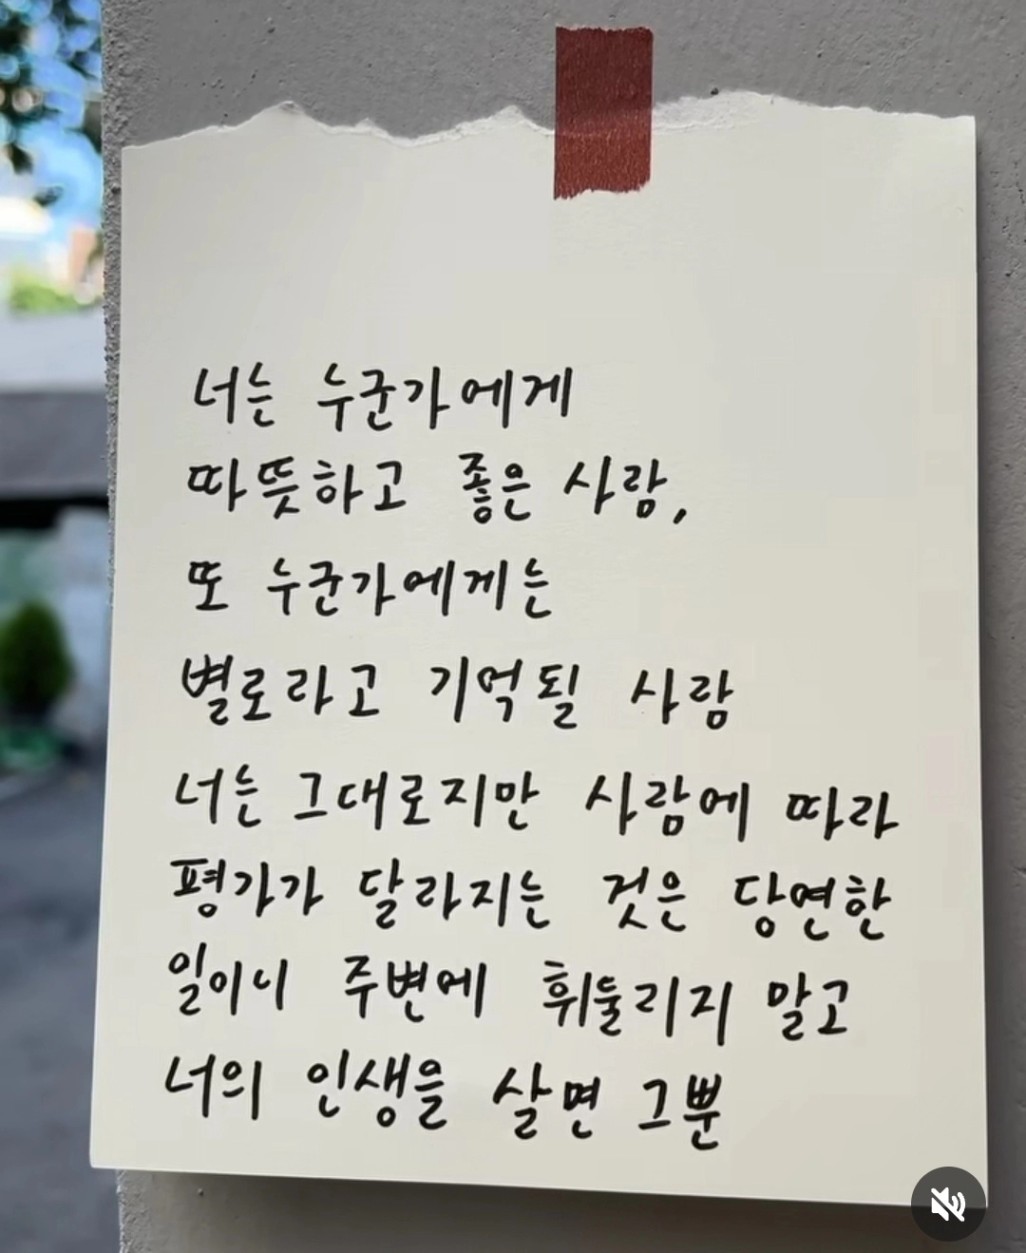 너는 누군가에게
따뜻하고 좋은 사람,
또 누군가에게는
별로라고 기억될 사람
너는 그대로지만 사람에 따라
평가가 달라지는 것은 당연한
일이니 주변에 휘둘리지 말고
너의 인생을 살면 그뿐